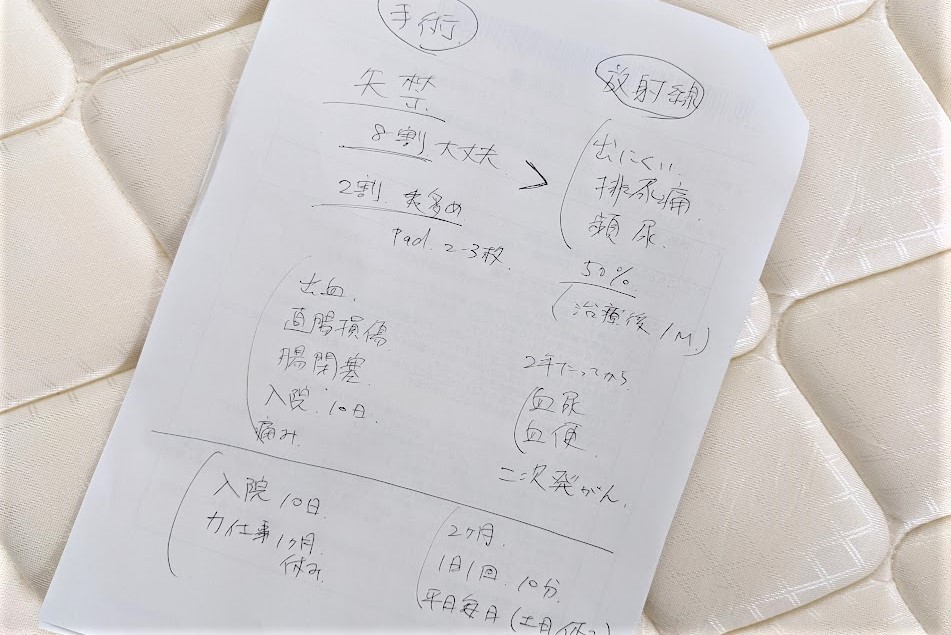 手術
失禁
8割 大丈夫
2割 長多め
Pad. 2-3枚.
出血.
直腸損傷
腸閉塞.
入院. 10日.
痛み.
>
放射線
出にくい.
排尿痛.
頻尿.
50%
(治療後 1M.)
2年たってから.
血尿
血便
二次発がん.
入院 10日.
力仕事 1ヶ月.
休み.
2ヶ月.
1日1回. 10分.
平日毎日 (土日休み